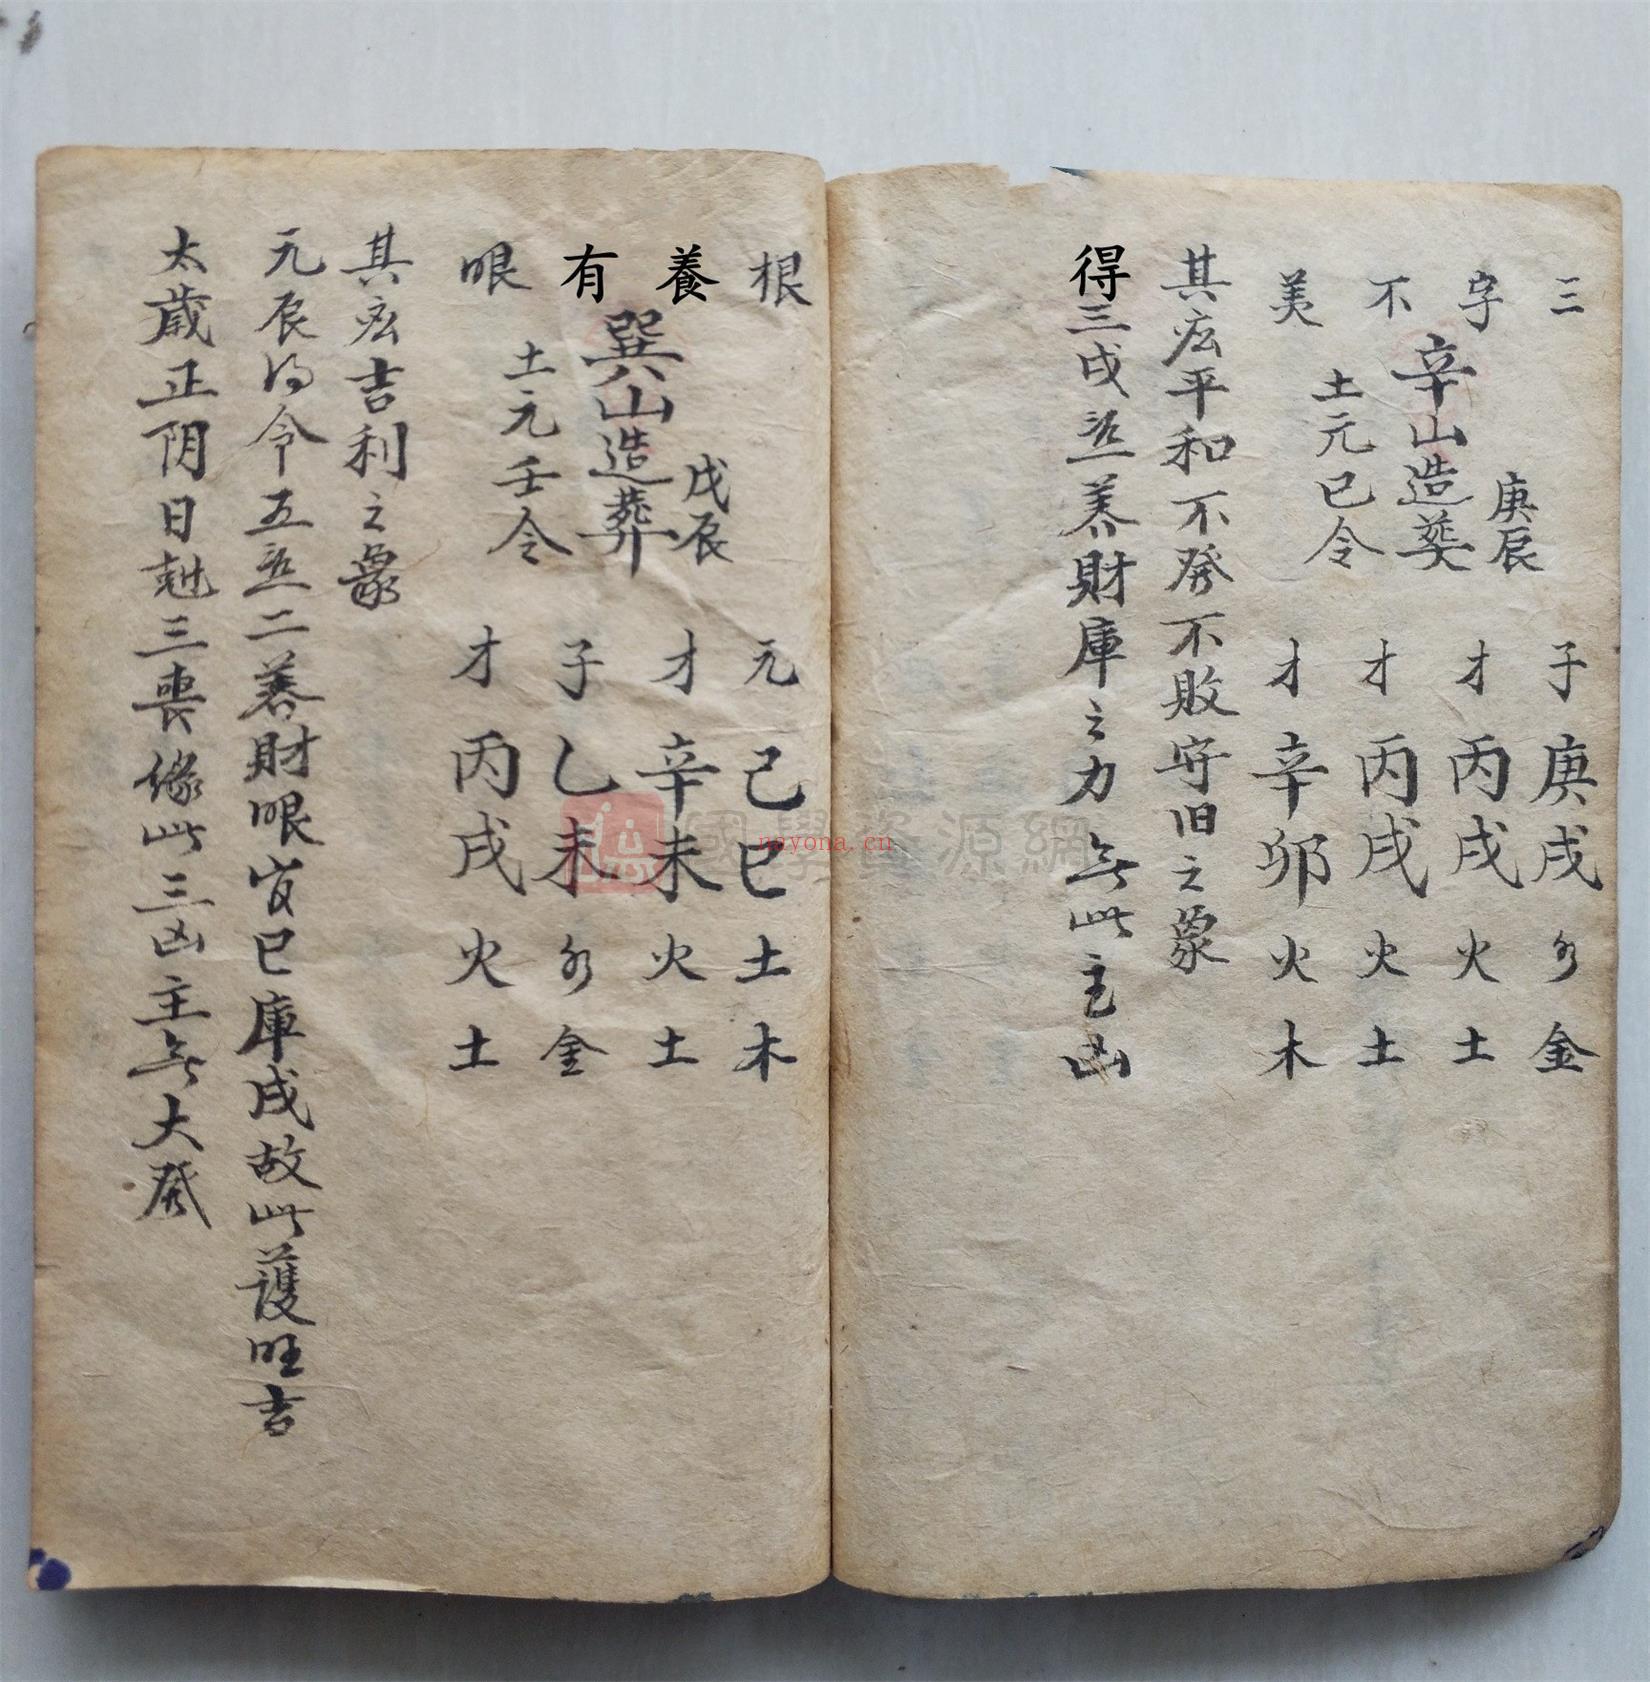 三字不美
辛山造葬
庚辰
土元已令
子庚戌水金
才丙戌火土
才丙戌火土
才辛卯火木
其宏平和不発不敗守旧之象
得三戌並养財庫之力無此主凶
根養有眼
巽山造葬
戊辰
土元壬令
元己巳土木
才辛未火土
子乙未水金
才丙戌火土
其宏吉利之象
元辰得令五並二养財眼㝵巳庫戌故此護旺吉
太歲正阴日尅三喪缘此三凶主無大発
國學資源網
nayona.cn